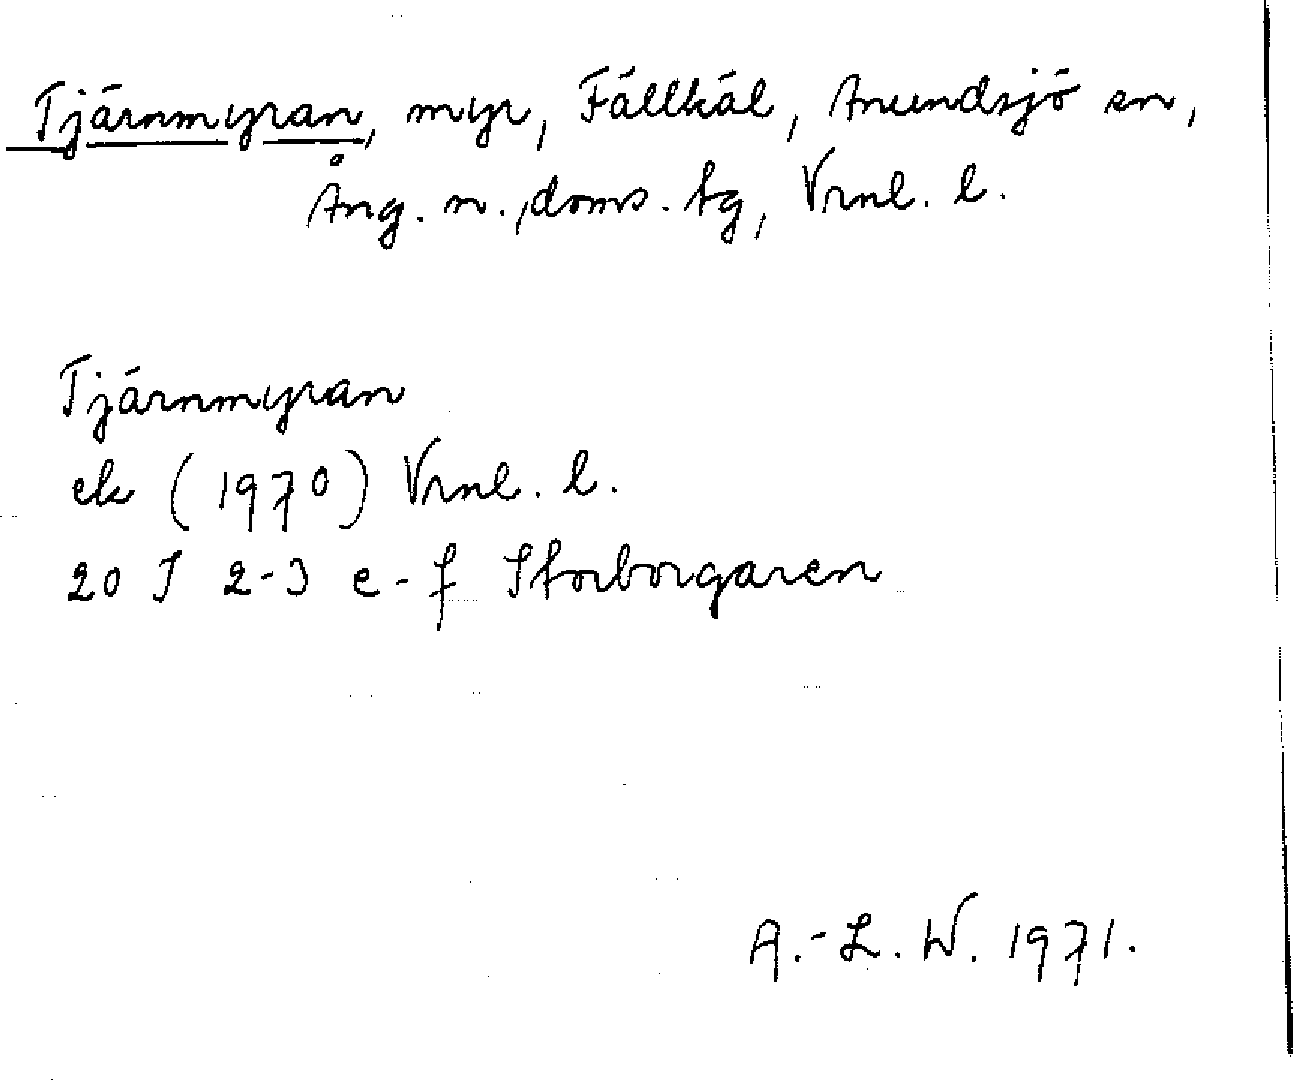 Tjärnmyran, myr, Fällkäl, Anundsjö sn,
Ång. n., doms. tg, Vrnl. l.
Tjärnmyran
ek (1970) Vrnl. l.
20 J 2-3 e-f Storborgaren
A.-L. W. 1971.